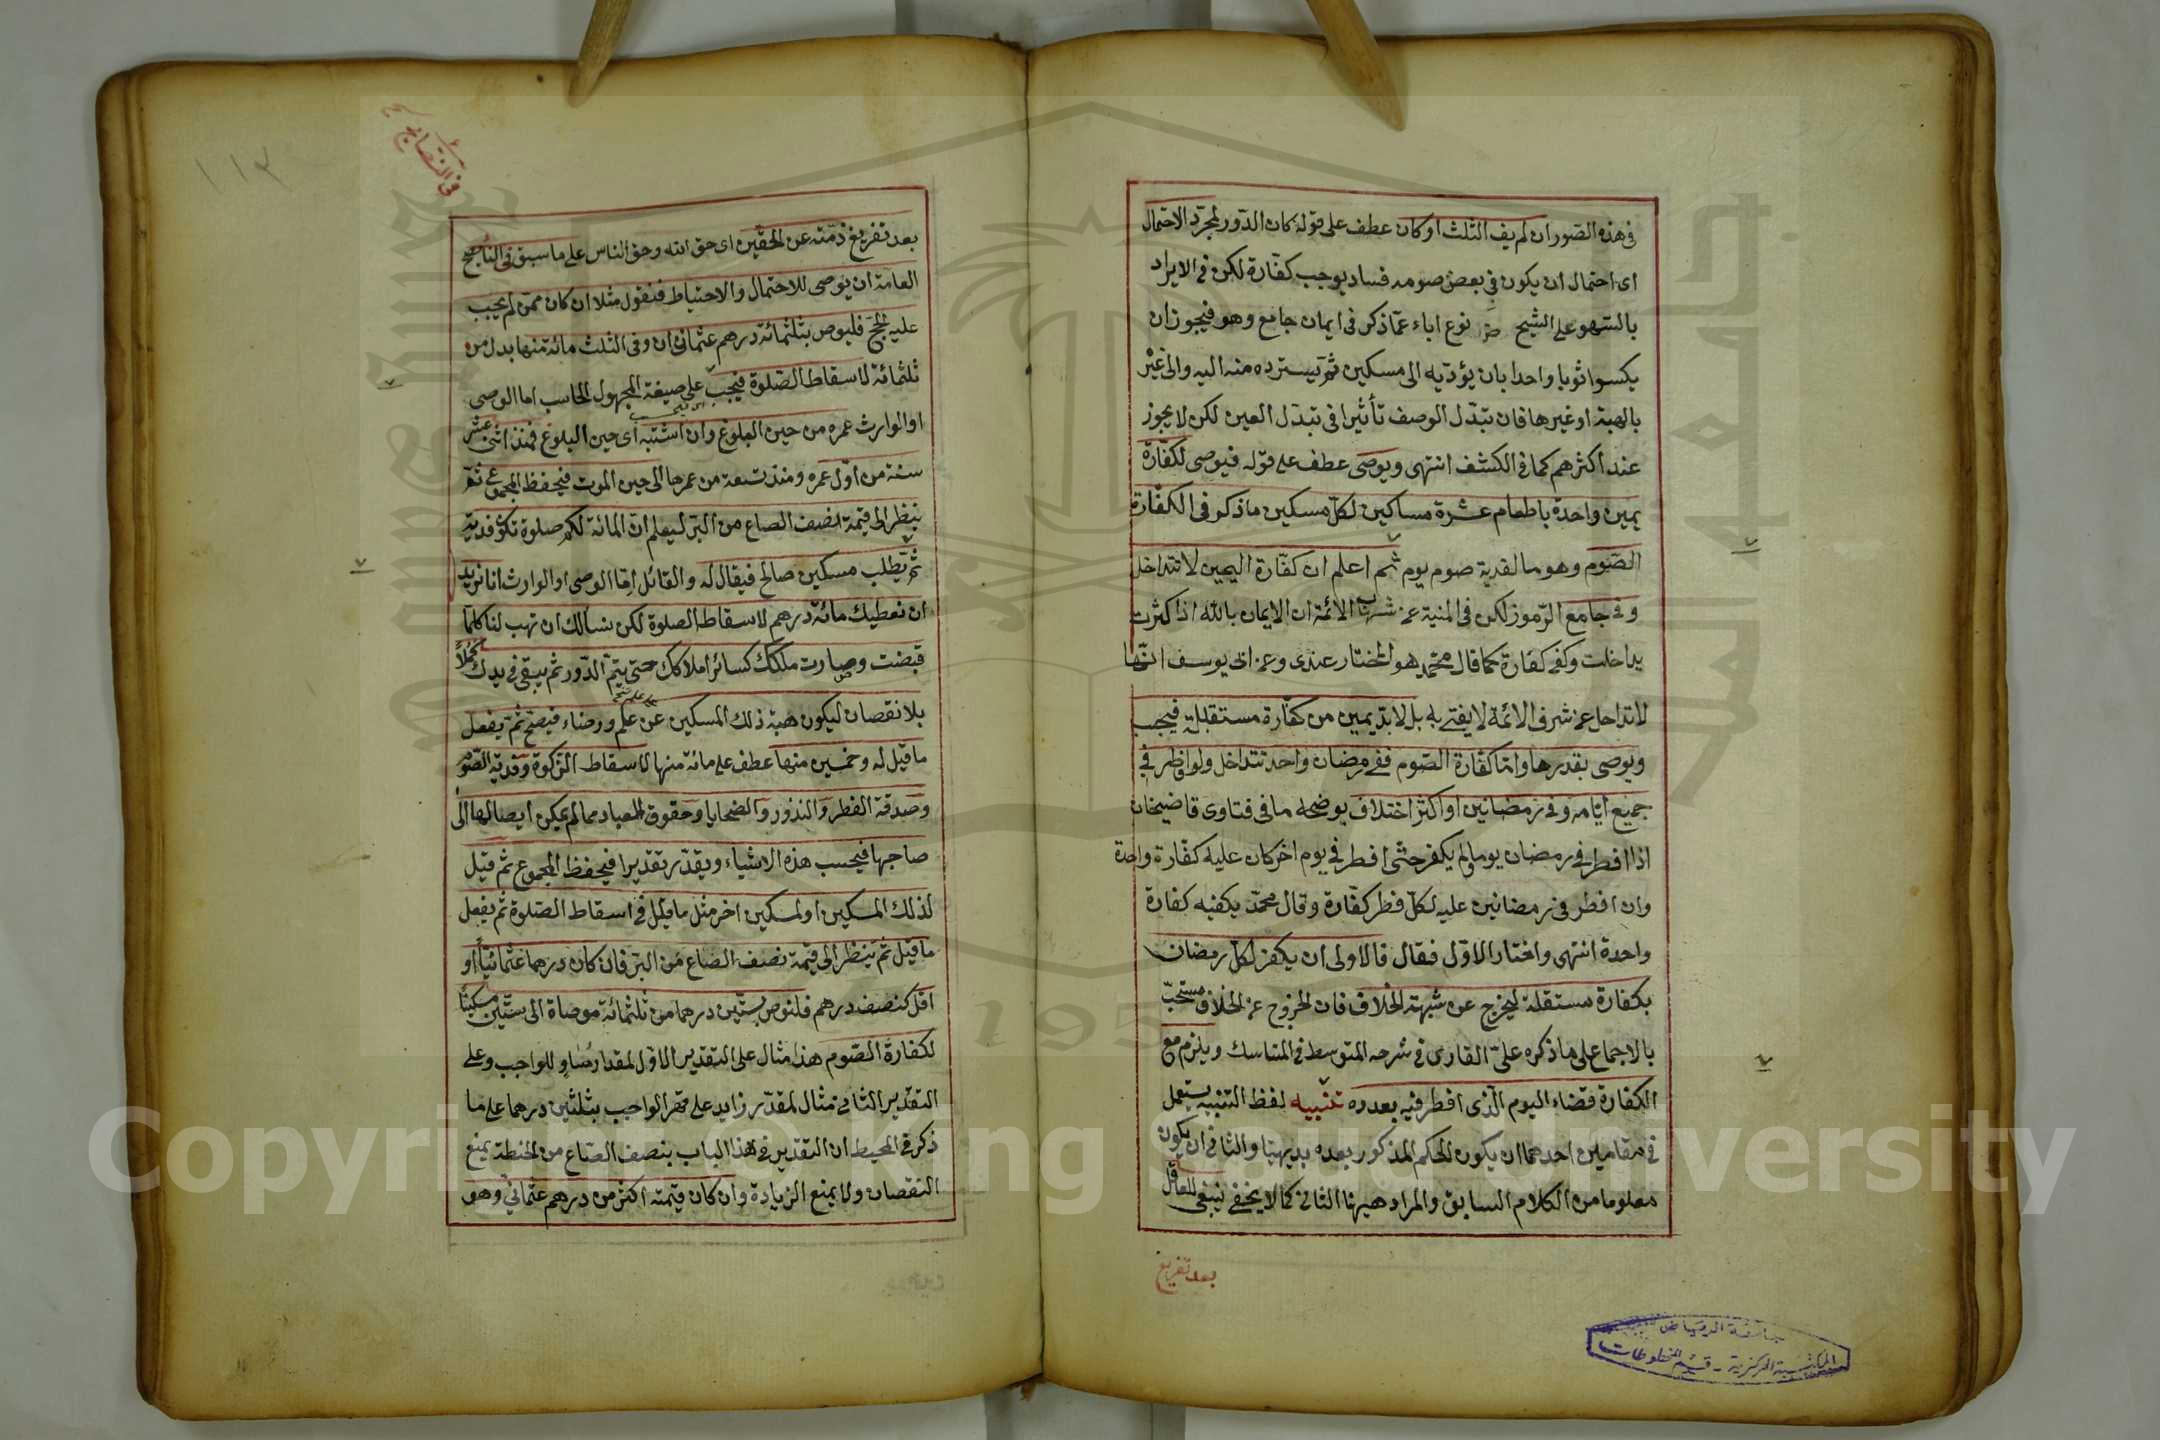 في هذه الصور ان لم يف الثلث او كان عطف على قوله كان الدور لمجرد الاحتمال
اى احتمال ان يكون في بعض صومه فساد يوجب كفارة لكن في الايراد
بالسهو على الشيخ نوع اباء عما ذكر فى ايمان جامع وهو فيجوز ان
يكسوا ثوبا واحدا بان يؤديه الى مسكين ثم يسترده منه اليه والى غيره
بالهبة او غيرها فان تبدل الوصف تأثيرا فى تبدل العين لكن لا يجوز
عند اكثرهم كما فى الكشف انتهى ويوصى عطف على قوله فيوصى لكفارة
يمين واحدة باطعام عشرة مساكين لكل مسكين ما ذكر فى الكفارة
الصوم وهو مالفدية صوم يوم ثم اعلم ان كفارة اليمين لا تتداخل
وفى جامع الرموز لكن فى المنية عن شهاب الائمة ان الايمان بالله اذا كثرت
يداخلت وكفى كفارة كما قال محمد هو المختار عندى وعن ابى يوسف انها
لا تتداخل عن شرف الائمة لا يفتى به بل لا بد يمين من كفارة مستقبلة فيجب
ويوصى بقدرها واما كفارة الصوم ففى رمضان واحد تتداخل ولو افطر فى
جميع ايامه وفى رمضانين او اكثر اختلاف يوضحه ما فى فتاوى قاضيخان
اذا افطر فى رمضان يوما ولم يكفر حتى افطر فى يوم اخر كان عليه كفارة واحدة
وان افطر فى رمضانين عليه لكل فطر كفارة وقال محمد يكفيه كفارة
واحدة انتهى واختار الاول فقال فالاولى ان يكفر لكل رمضان
بكفارة مستقلة ليخرج عن شبهة الخلاف فان الخروج عن الخلاف مستحب
بالاجماع على ما ذكره على القارى فى شرحه المتوسط فى المناسك ويلزم مع
الكفارة قضاء اليوم الذى افطر فيه بعدده تنبيه لفظ التنبيه يستعمل
فى مقامين احدهما ان يكون الحكم المذكور بعده بديهيا والثانى ان يكون
معلوما من الكلام السابق والمراد ههنا الثانى كما لا يخفى ينبغى للعاقل
بعد تفريغ
جامعة الرياض
المكتبة المركزية - قسم المخطوطات
١١٣
بعد تفريغ ذمته عن الحقين اى حق الله وحق الناس على ما سبق فى النايح
العامة ان يوصى للاحتمال والاحتياط فنقول مثلا ان كان ممن لم يجب
عليه الحج فليوص بثلثمائة درهم عثمانى ان وفى الثلث مائة منها بدل من
ثلثمائة لاسقاط الصلوة فيجب على صيغة المجهول الحاسب اما الوصى
او الوارث عمره من حين البلوغ وان اشتبه اى حين البلوغ فمنذ اثنى عشر
سنة من اول عمره ومنذ تسعة من عمرها الى حين الموت فيحفظ المجموع ثم
ينظر الى قيمة نصف الصاع من البر ليعلم ان المائة لكم صلوة تكون فدية
ثم يطلب مسكين صالح فيقال له والقائل اما الوصى او الوارث انا نريد
ان نعطيك مائة درهم لاسقاط الصلوة لكن نسالك ان تهب لنا كلما
قبضت وصارت ملكك كسائر املاكك حتى يتم الدور ثم يبقى فى يدك كملا
بلا نقصان ليكون هبة ذلك المسكين عن علم ورضاء فيصح ثم يفعل
ما قيل له وخمسين منها عطف على مائة منها لاسقاط الزكوة وفدية الصوم
وصدقة الفطر والنذور والضحايا وحقوق العباد مما لم يمكن ايصالها الى
صاحبها فيحسب هذه الاشياء ويقدر تقديرا فيحفظ المجموع ثم قيل
لذلك المسكين او لمسكين اخر مثل ما قيل فى اسقاط الصلوة ثم يفعل
ما قيل ثم ينظر الى قيمة نصف الصاع من البر فان كان درهما عثمانيا او
اقل كنصف درهم فليوص بستين درهما من ثلثمائة موصاة الى ستين مسكينا
لكفارة الصوم هذا مثال على التقدير الاول لمقدار مساو للواجب وعلى
التقدير الثانى مثال لمقدر زايد على قدر الواجب بثلثين درهما على ما
ذكر فى المحيط ان التقدير فى هذا الباب بنصف الصاع من الحنطة يمنع
النقصان ولا يمنع الزيادة وان كان قيمته اكثر من درهم عثمانى وهو
Copyright © King Saud University